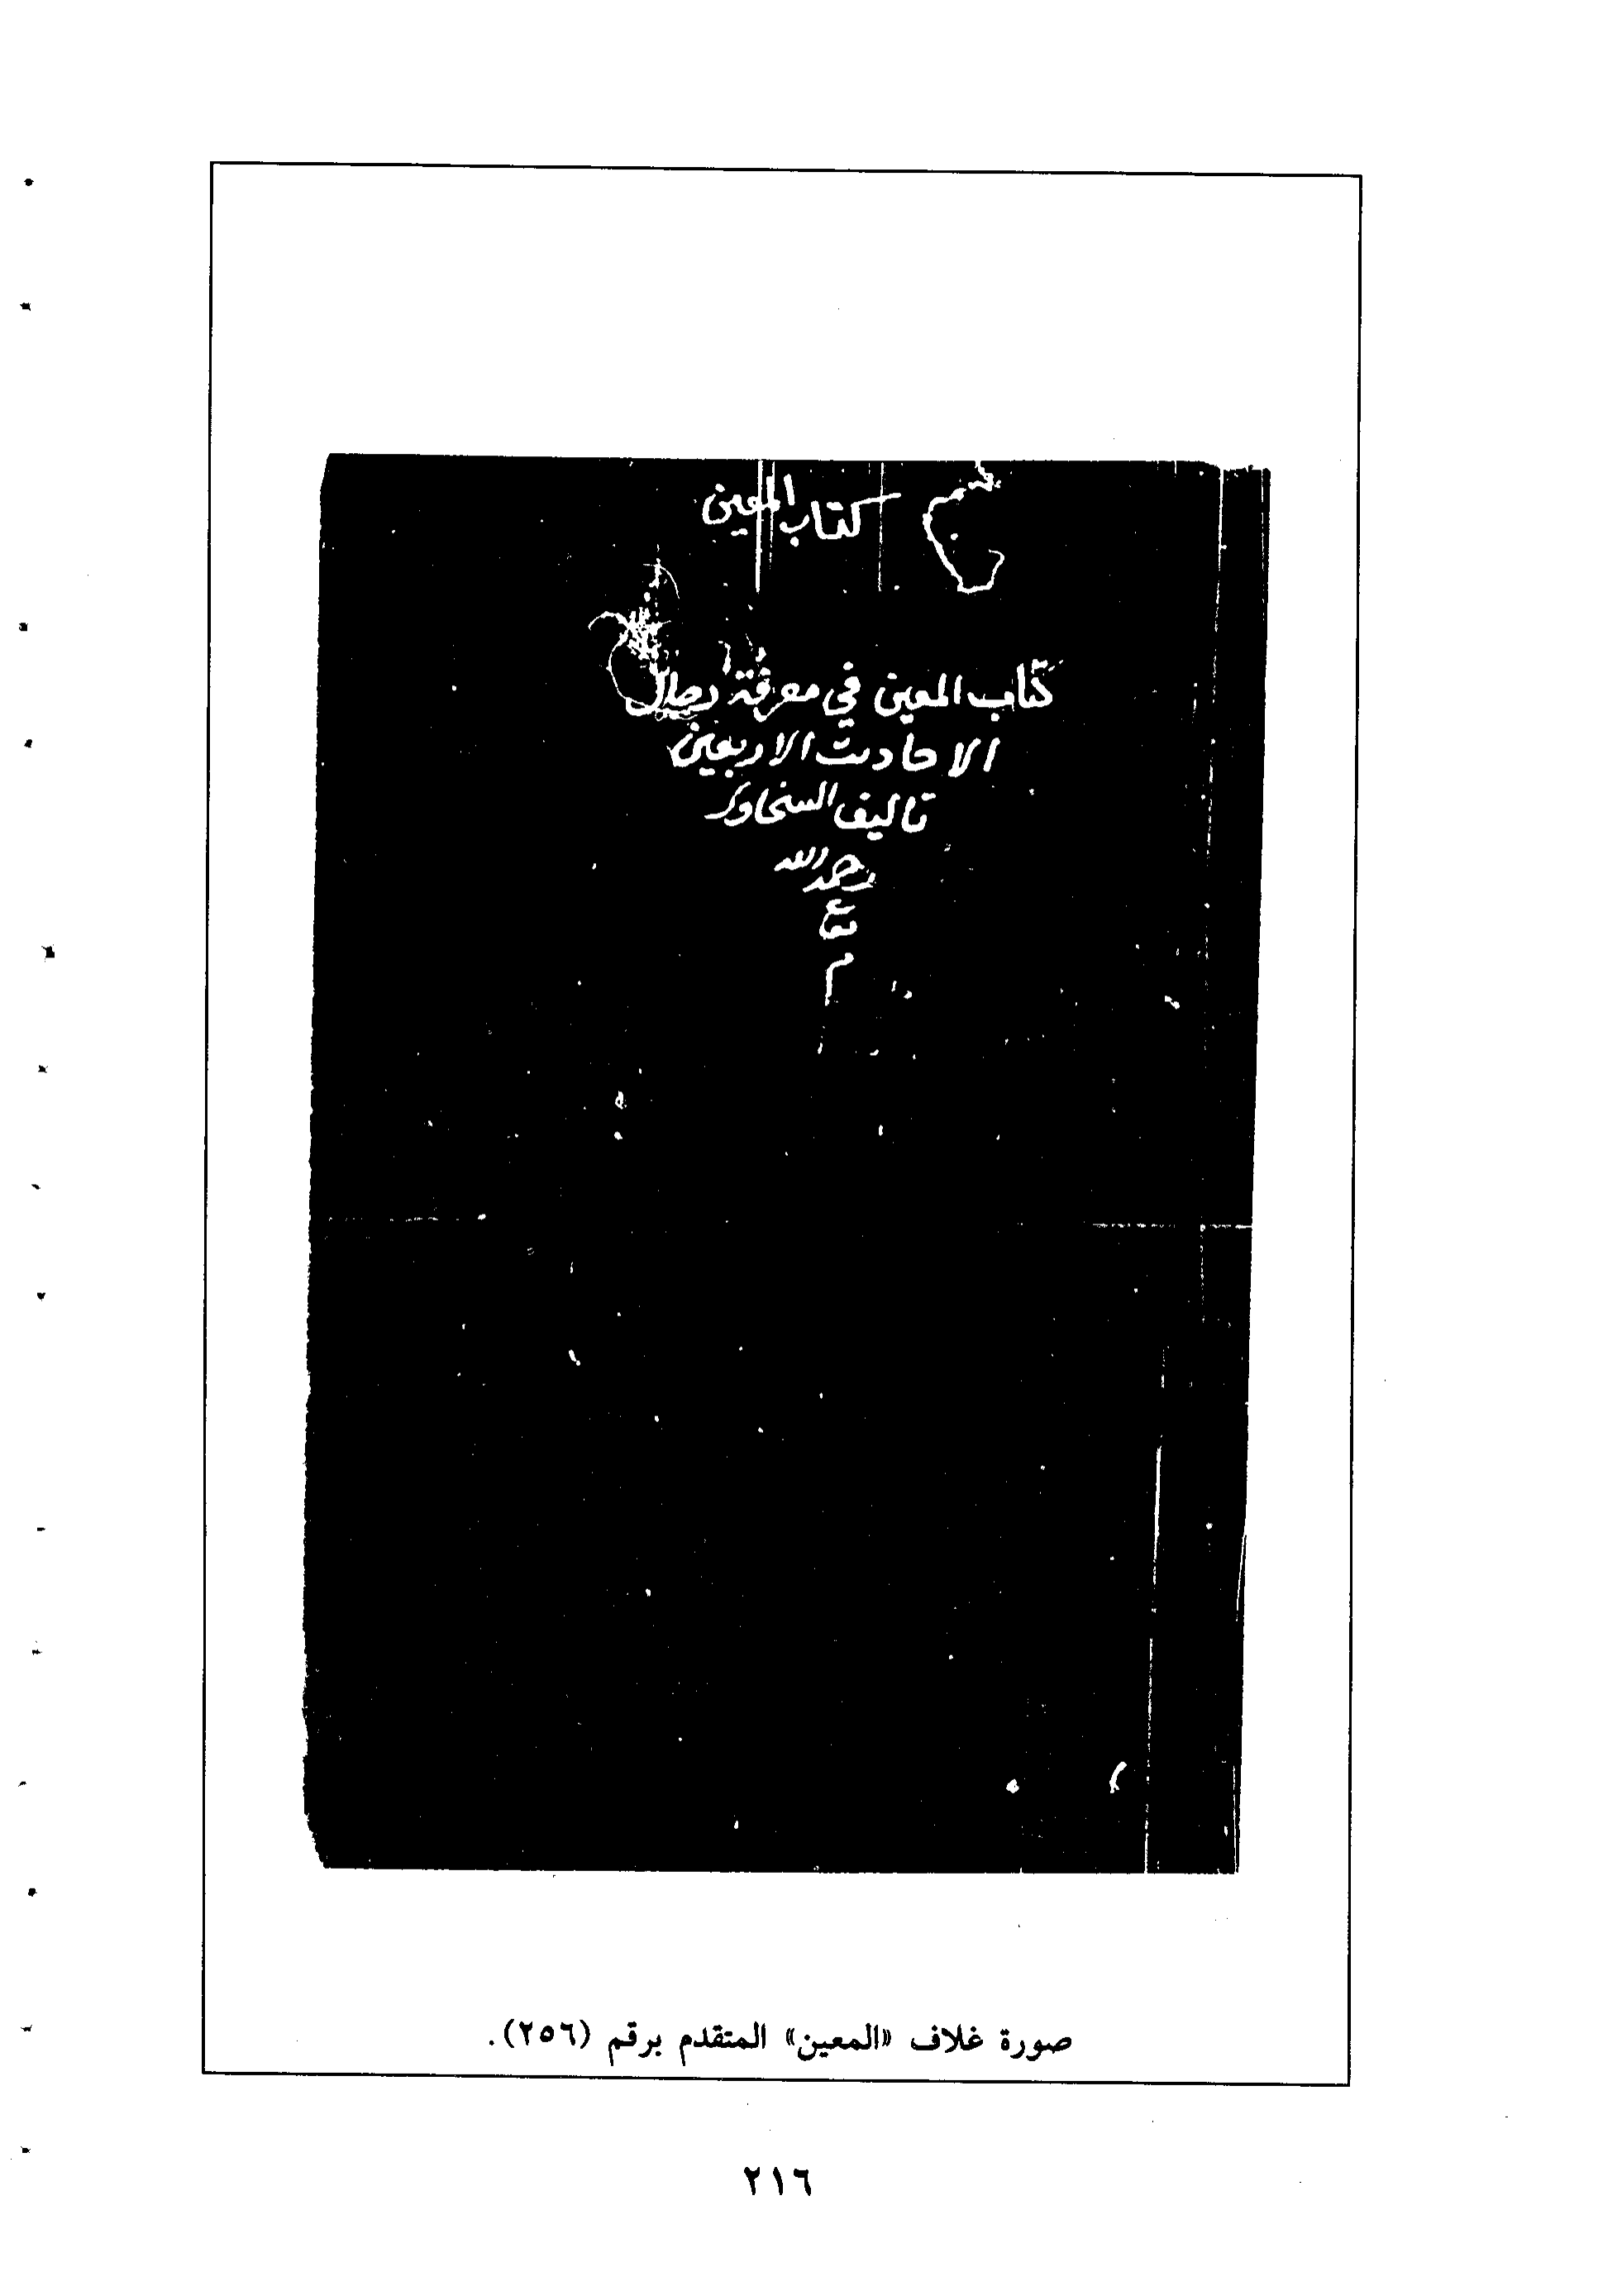 كتاب المعين
كتاب المعين في معرفة رجال
الاحاديث الاربعين
تاليف السخاوي
رحمه الله
تع
م
صورة غلاف «المعين» المتقدم برقم (٢٥٦).
٢١٦